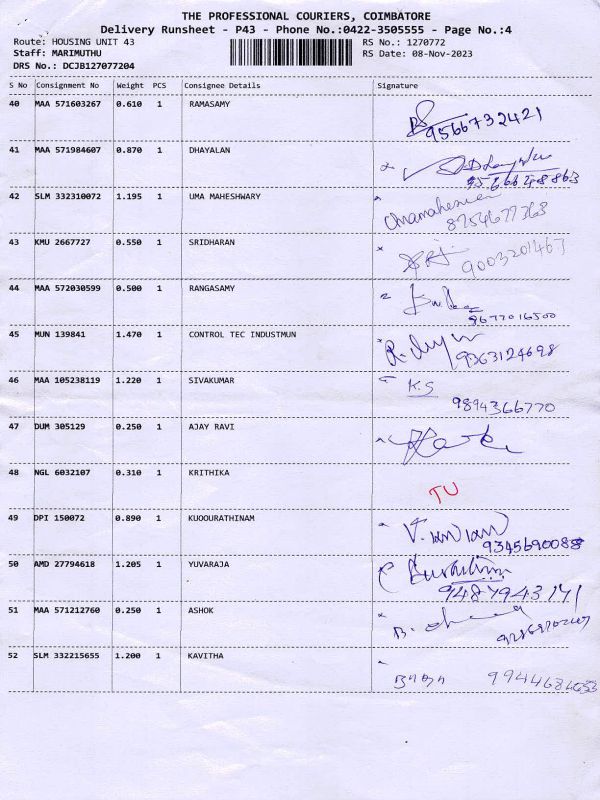 THE PROFESSIONAL COURIERS, COIMBATORE
Delivery Runsheet - P43 - Phone No.:0422-3505555 - Page No.:4
Route: HOUSING UNIT 43 RS No.: 1270772
Staff: MARIMUTHU RS Date: 08-Nov-2023
DRS No.: DCJB127077204
S No Consignment No Weight PCS Consignee Details Signature
40 MAA 571603267 0.610 1 RAMASAMY
9566732421
41 MAA 571984607 0.870 1 DHAYALAN
42 SLM 332310072 1.195 1 UMA MAHESHWARY
Umamaheswari
8754677363
43 KMU 2667727 0.550 1 SRIDHARAN
9003201467
44 MAA 572030599 0.500 1 RANGASAMY
9677016500
45 MUN 139841 1.470 1 CONTROL TEC INDUSTMUN
9363124698
46 MAA 105238119 1.220 1 SIVAKUMAR
K.S
9894366770
47 DUM 305129 0.250 1 AJAY RAVI
48 NGL 6032107 0.310 1 KRITHIKA
TU
49 DPI 150072 0.890 1 KUOOURATHINAM
9345690088
50 AMD 27794618 1.205 1 YUVARAJA
9487943171
51 MAA 571212760 0.250 1 ASHOK
52 SLM 332215655 1.200 1 KAVITHA